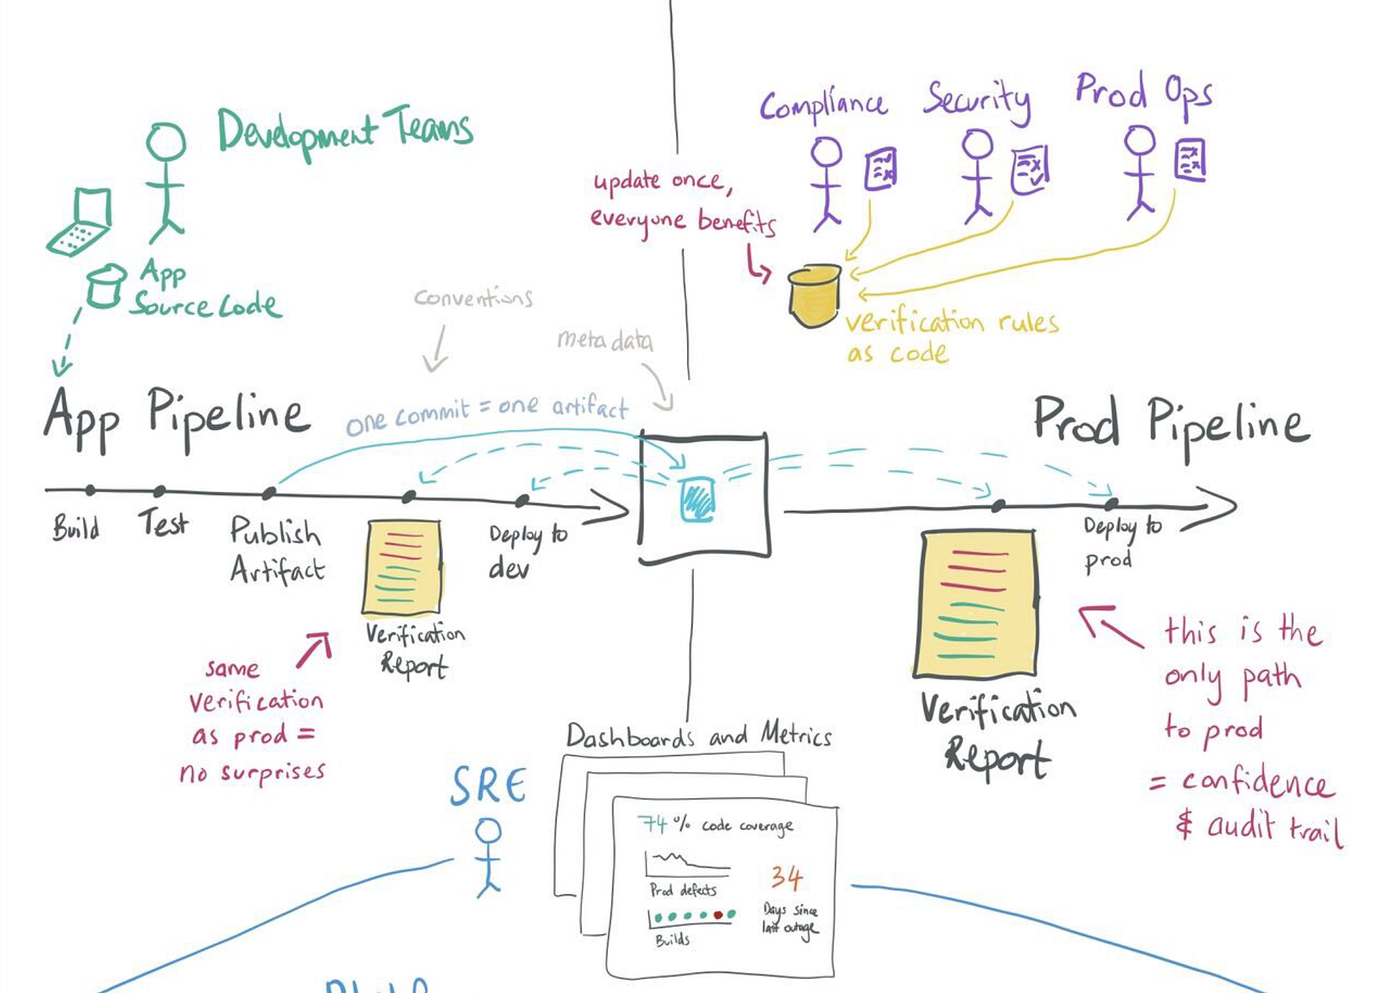 Development Teams
App
Source Code
Compliance
Security
Prod Ops
update once,
everyone benefits
verification rules
as code
conventions
metadata
App Pipeline
one commit = one artifact
Prod Pipeline
Build
Test
Publish
Artifact
Verification
Report
Deploy to
dev
Deploy to
prod
Verification
Report
same
verification
as prod =
no surprises
this is the
only path
to prod
= confidence
& audit trail
SRE
Dashboards and Metrics
74% code coverage
Prod defects
Builds
34
Days since
last outage